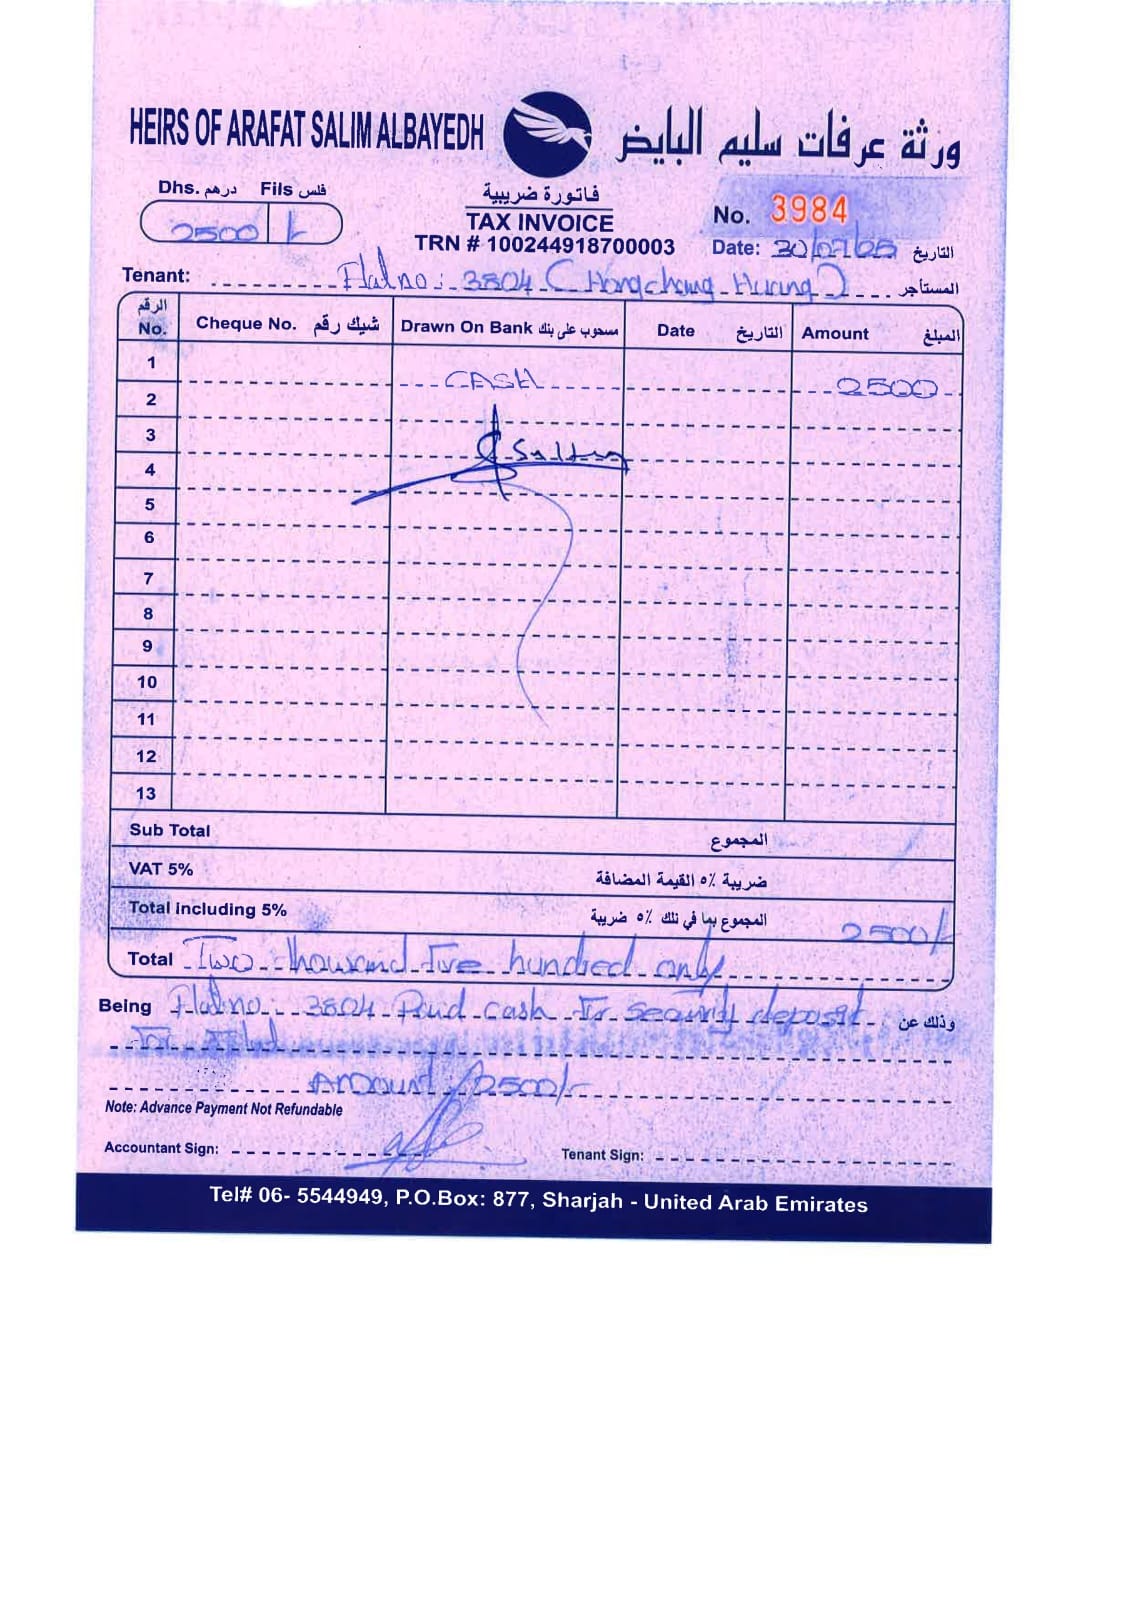 HEIRS OF ARAFAT SALIM ALBAYEDH ورثة عرفات سليم البايض
Dhs. درهم Fils فلس
2500 /-
فاتورة ضريبية
TAX INVOICE
TRN # 100244918700003
No. 3984
Date: التاريخ
Tenant: Flat no: 3804 ( المستأجر
الرقم No. Cheque No. شيك رقم Drawn On Bank مسحوب على بنك Date التاريخ Amount المبلغ
1 CASH 2500
2
3
4
5
6
7
8
9
10
11
12
13
Sub Total المجموع
VAT 5% ضريبة ٥٪ القيمة المضافة
Total including 5% المجموع بما في تلك ٥٪ ضريبة 2500/-
Total Two thousand five hundred only
Being Flat no: 3804 Paid cash for security deposit وذلك عن
Amount 2500/-
Note: Advance Payment Not Refundable
Accountant Sign: Tenant Sign:
Tel# 06- 5544949, P.O.Box: 877, Sharjah - United Arab Emirates